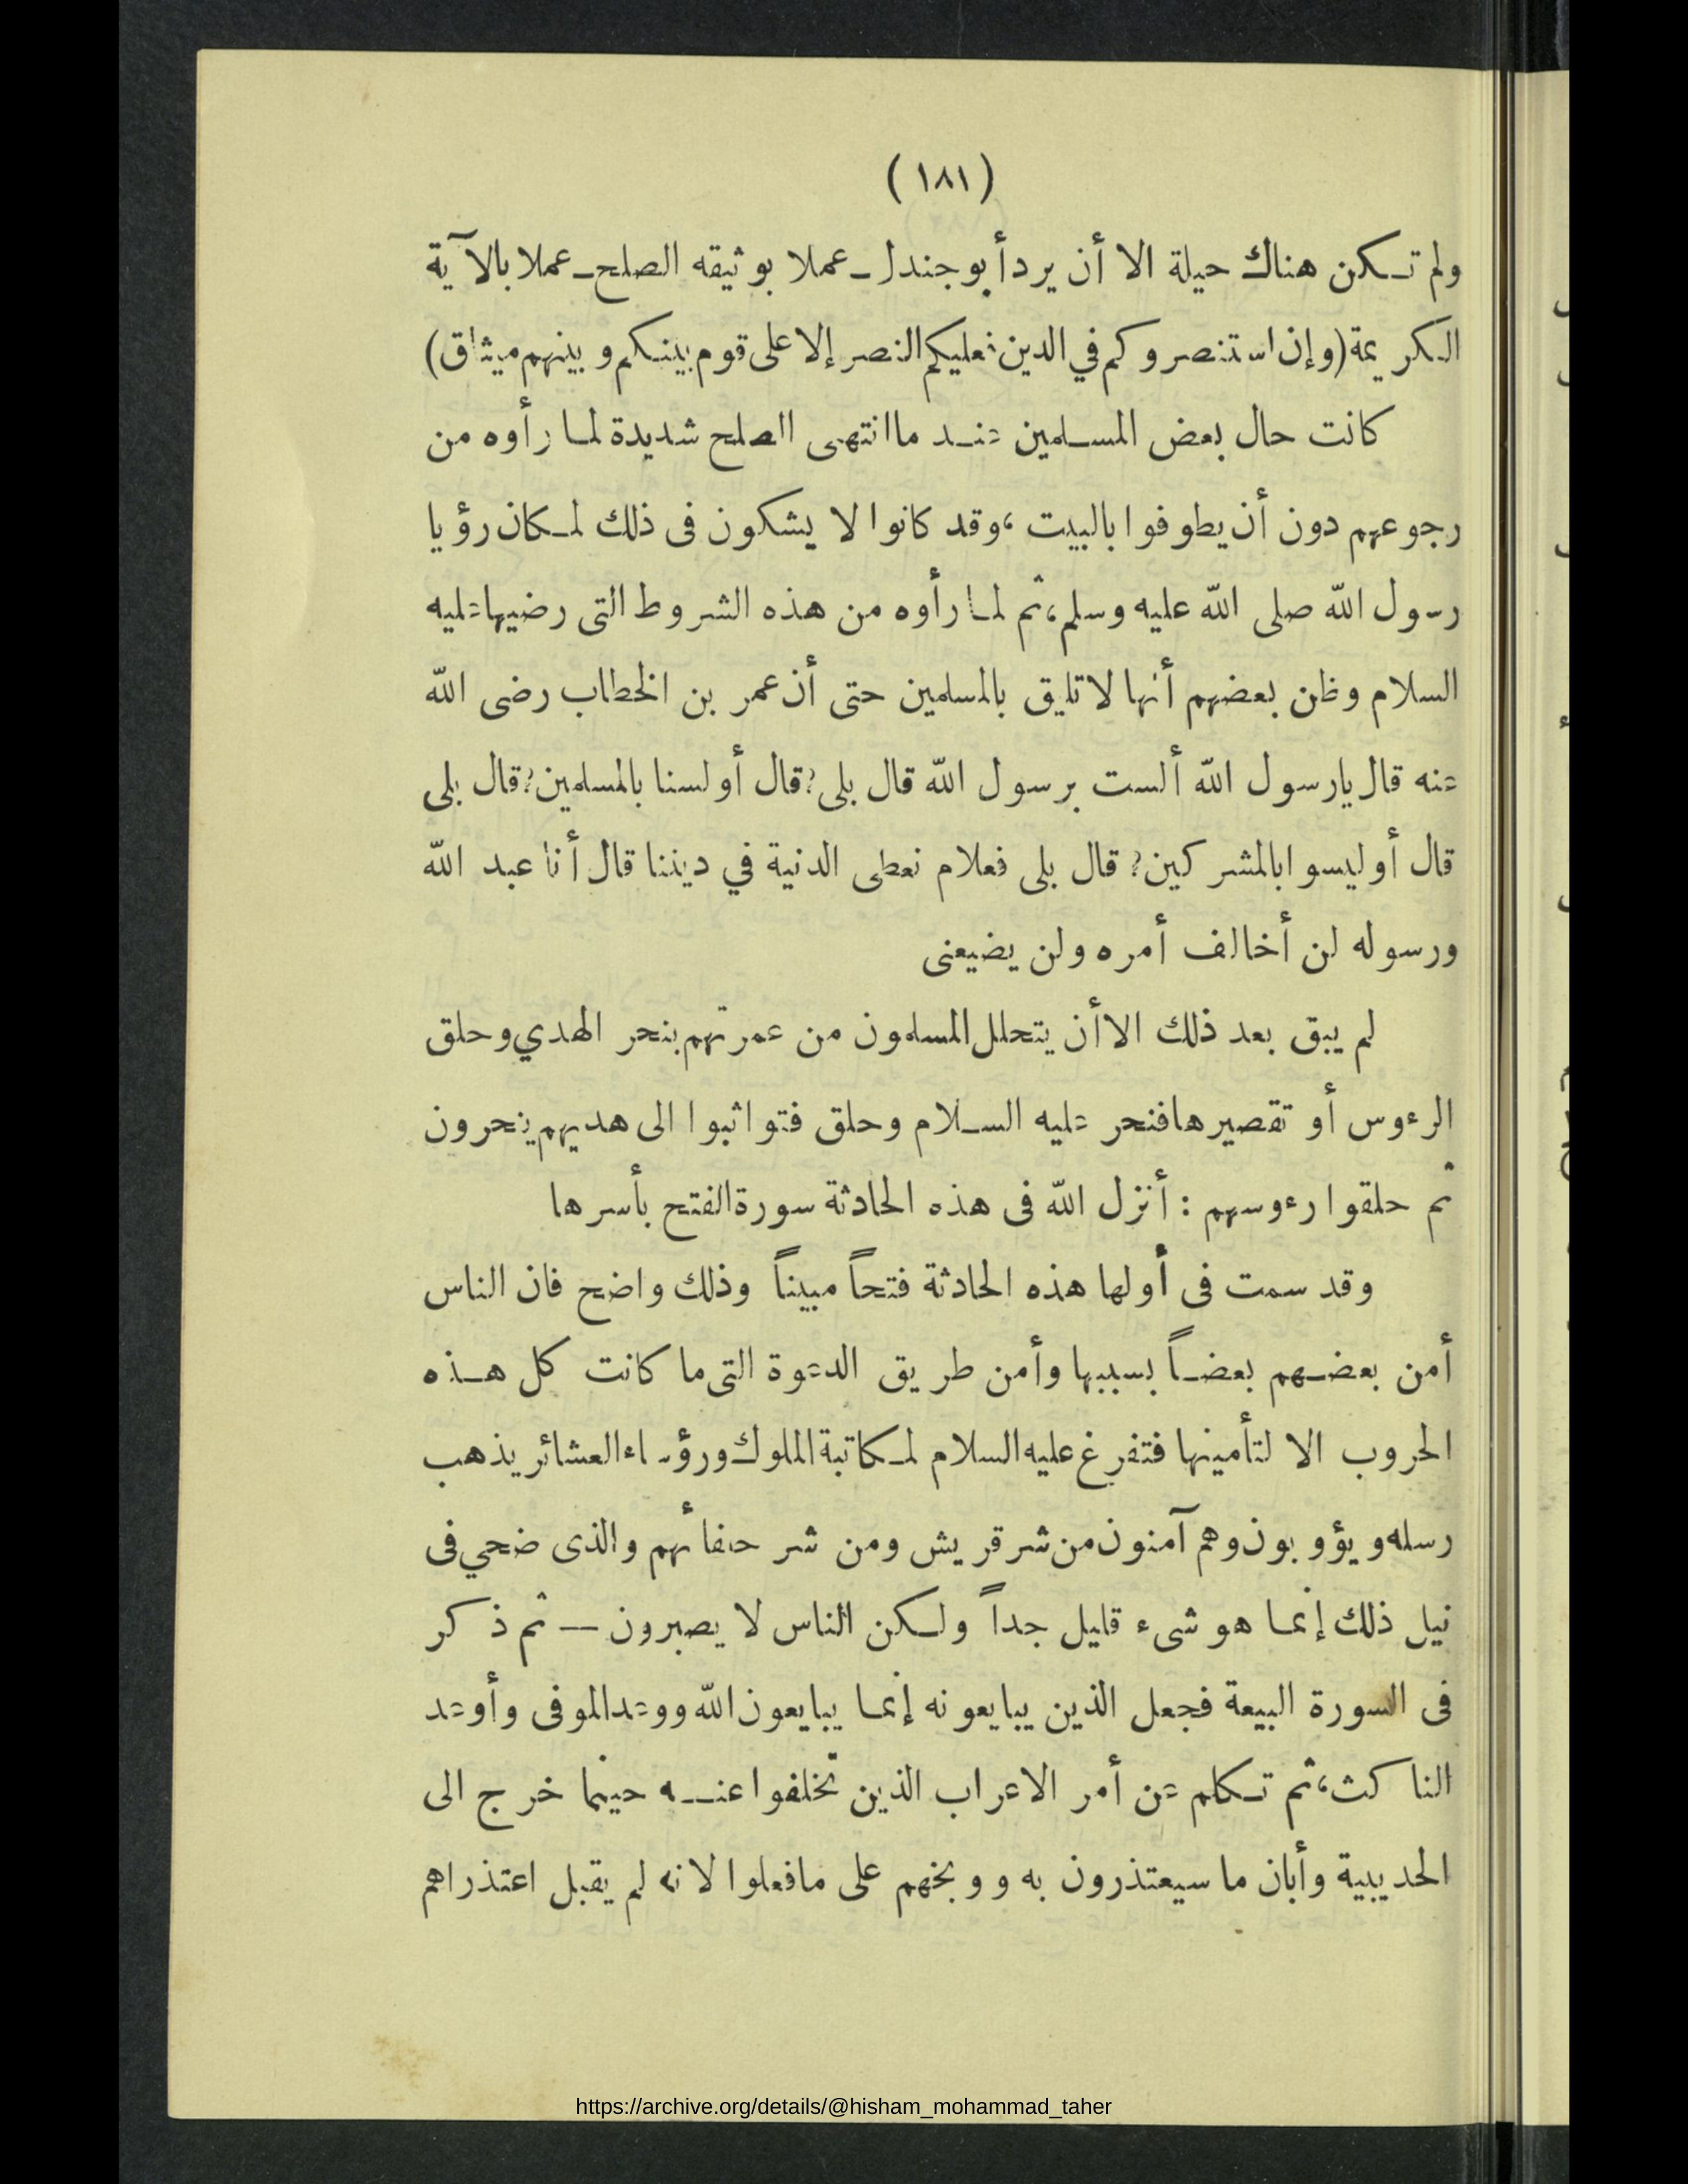 (١٨١)
ولم تكن هناك حيلة الا أن يرد أبو جندل ـ عملا بوثيقه الصلح ـ عملا بالآية
الكريمة (وإن استنصروكم في الدين فعليكم النصر إلا على قوم بينكم وبينهم ميثاق)
كانت حال بعض المسلمين عند ما انتهى الصلح شديدة لما رأوه من
رجوعهم دون أن يطوفوا بالبيت، وقد كانوا لا يشكون فى ذلك لمكان رؤيا
رسول الله صلى الله عليه وسلم، ثم لما رأوه من هذه الشروط التى رضيها عليه
السلام وظن بعضهم أنها لا تليق بالمسلمين حتى أن عمر بن الخطاب رضى الله
عنه قال يارسول الله ألست برسول الله قال بلى؟ قال أولسنا بالمسلمين؟ قال بلى
قال أوليسوا بالمشركين؟ قال بلى فعلام نعطى الدنية في ديننا قال أنا عبد الله
ورسوله لن أخالف أمره ولن يضيعنى
لم يبق بعد ذلك الا أن يتحلل المسلمون من عمرتهم بنحر الهدي وحلق
الرءوس أو تقصيرها فنحر عليه السلام وحلق فتواثبوا الى هديهم ينحرون
ثم حلقوا رءوسهم : أنزل الله فى هذه الحادثة سورة الفتح بأسرها
وقد سمت فى أولها هذه الحادثة فتحاً مبيناً وذلك واضح فان الناس
أمن بعضهم بعضاً بسببها وأمن طريق الدعوة التى ما كانت كل هذه
الحروب الا لتأمينها فتفرغ عليه السلام لمكاتبة الملوك ورؤساء العشائر يذهب
رسله ويؤوبون وهم آمنون من شر قريش ومن شر حلفائهم والذى ضحي فى
نيل ذلك إنما هو شىء قليل جداً ولكن الناس لا يصبرون — ثم ذكر
فى السورة البيعة فجعل الذين يبايعونه إنما يبايعون الله ووعد الموفى وأوعد
الناكث، ثم تكلم عن أمر الاعراب الذين تخلفوا عنه حينما خرج الى
الحديبية وأبان ما سيعتذرون به ووبخهم على مافعلوا لانه لم يقبل اعتذراهم
https://archive.org/details/@hisham_mohammad_taher